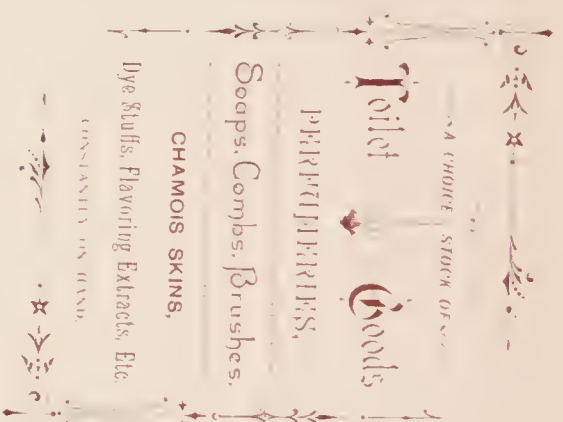 A CHOICE STOCK OF
Toilet Goods
PERFUMERIES,
Soaps, Combs, Brushes,
CHAMOIS SKINS,
Dye Stuffs, Flavoring Extracts, Etc.
CONSTANTLY ON HAND.